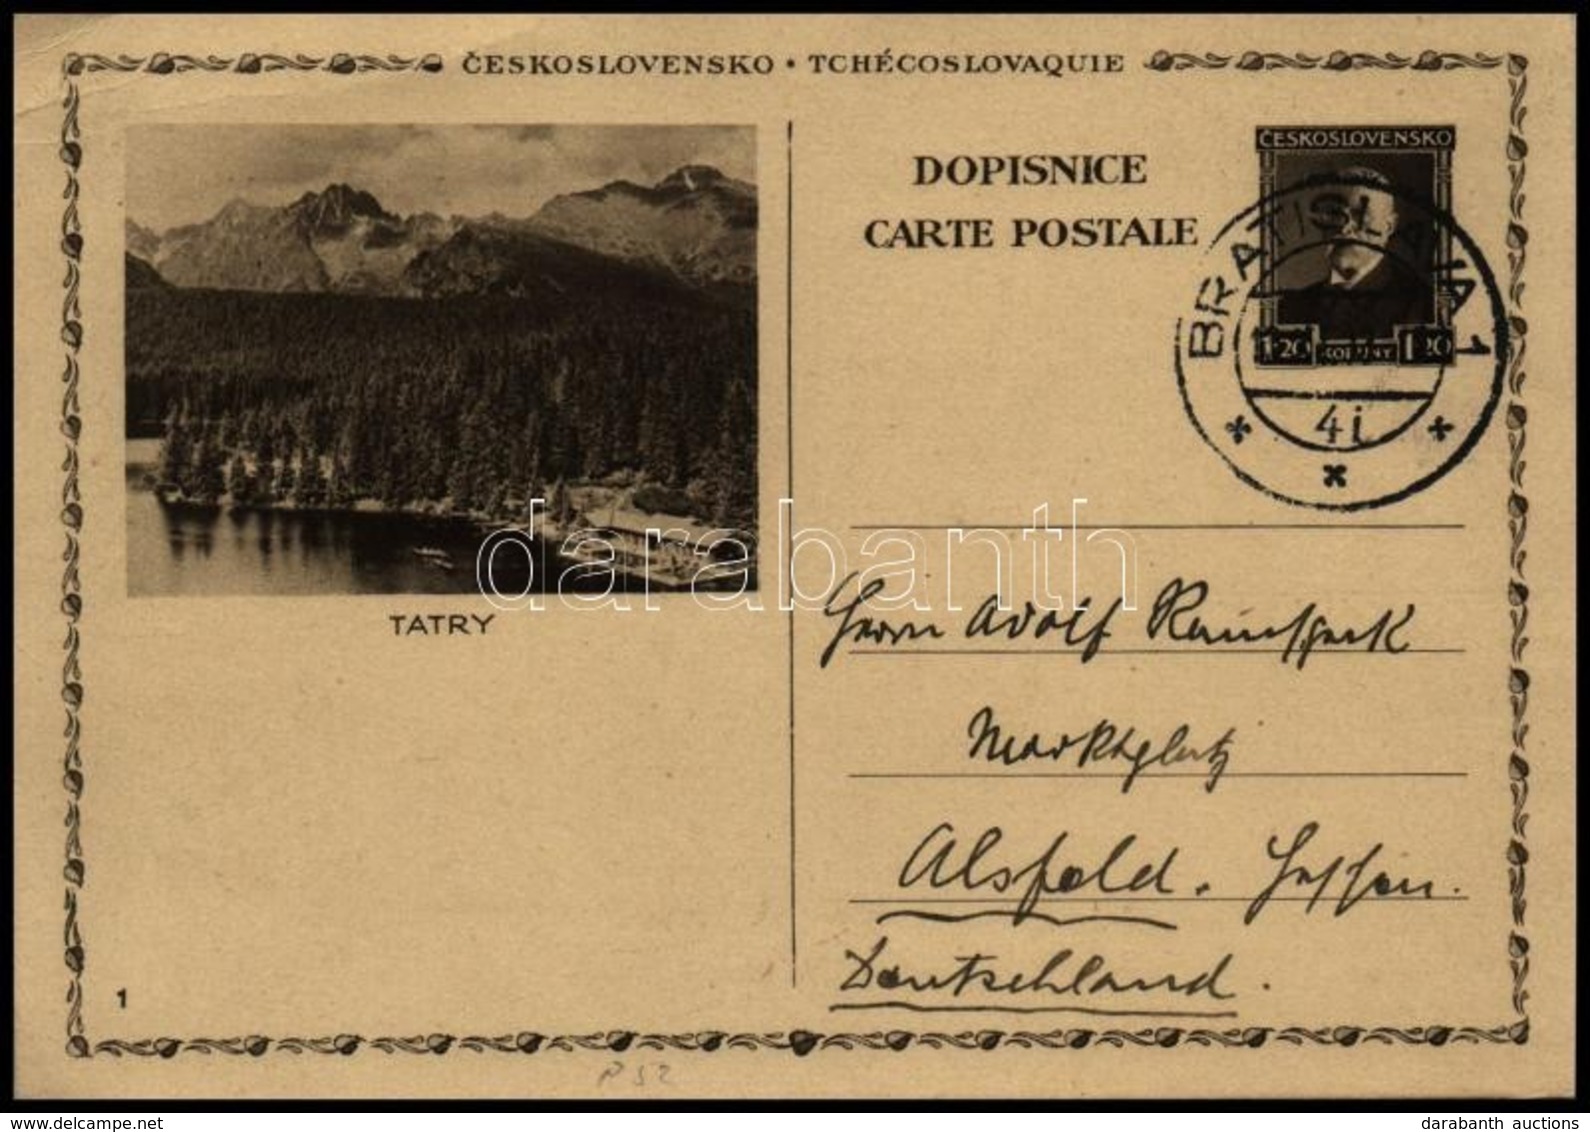 ČESKOSLOVENSKO • TCHÉCOSLOVAQUIE
DOPISNICE
CARTE POSTALE
ČESKOSLOVENSKO
1·20 KORUNY 1·20
BRATISLAVA 1
4i
TATRY
darabanth
Herrn Adolf Ramspeck
Marktplatz
Alsfeld. Hessen.
Deutschland.
1
P 52
www.delcampe.net
darabanth auctions